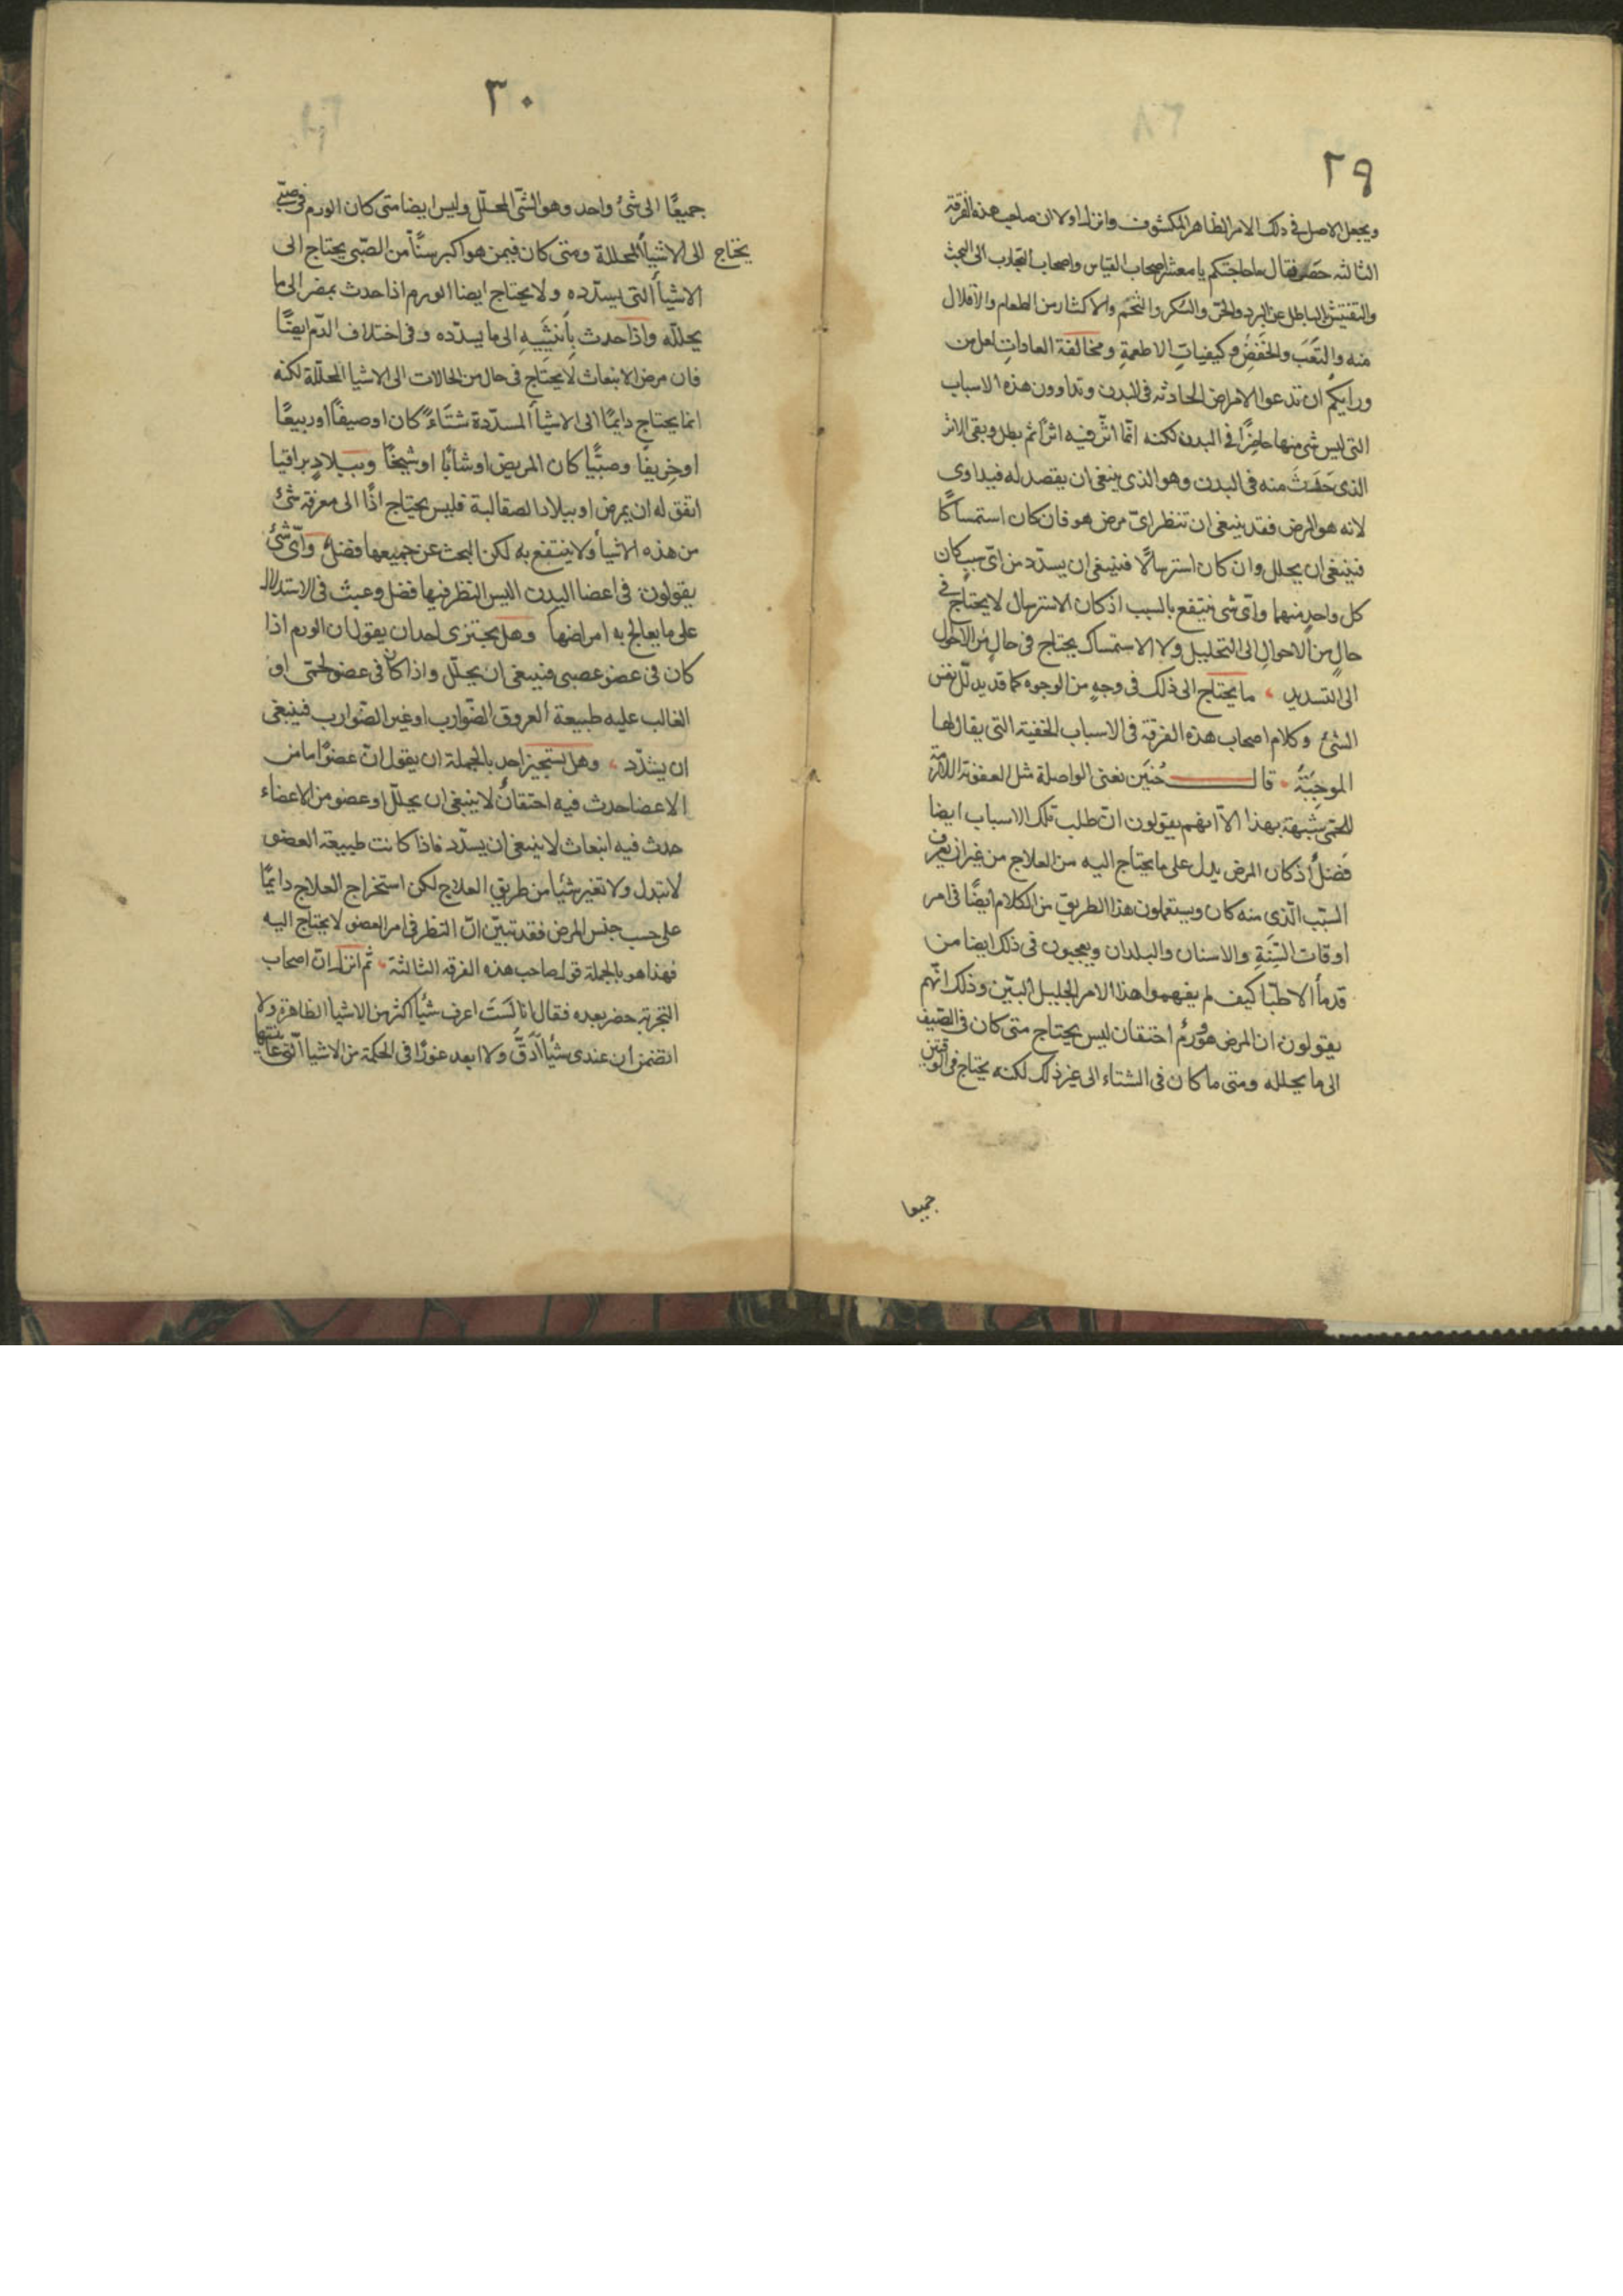 ٢٩
ويجعل الاصل في ذلك الامر الظاهر المكشوف وانزل اولا ان صاحب هذه الفرقة
الثالثه حضر فقال ما حاجتكم يا معشر اصحاب القياس واصحاب التجارب الى البحث
والتفتيش الباطل عن البرد والحر والسكر والتخم والاكثار من الطعام والاقلال
منه والتعب والخفض وكيفيات الاطعمة ومخالفة العادات لعل من
ورايكم ان تدعوا الامراض الحادثه في البدن وتداوون هذه الاسباب
التي ليس شى منها حاضرًا في البدن لكنه انّما اثّر فيه اثرًا ثم بطل وبقى الاثر
الذى حدث منه فى البدن وهو الذى ينبغى ان يقصد له فيداوى
لانه هو المرض فقد ينبغى ان تنظر اىّ مرض هو فان كان استمساكًا
فينبغى ان يحلل وان كان استرسالًا فينبغى ان يسدّد من اىّ سبب كان
كل واحدٍ منهما واىّ شى ينتفع بالسبب اذ كان الاسترسال لا يحتاج في
حالٍ من الاحوال الى التحليل ولا الاستمساك يحتاج فى حالٍ من الاحوال
الى التسديد ، ما يحتاج الى ذلك فى وجهٍ من الوجوه كما قد يدلّ نفس
الشئ وكلام اصحاب هذه الفرقة فى الاسباب الخفية التى يقال لها
الموجبَة ، قال حُنَين نعنى الواصلة مثل العفونة اللازمة
للحمى شبهة بهذا الّا انهم يقولون انّ طلب تلك الاسباب ايضا
فضلٌ اذ كان المرض يدل على ما يحتاج اليه من العلاج من غير ان يعرف
السبَب الّذى منه كان ويستعملون هذا الطريق من الكلام ايضًا فى امر
اوقات السَنَةِ والاسنان والبلدان ويعجبون فى ذلك ايضا من
قدمأ الاطبّا كيف لم يفهموا هذا الامر الجليل البيّن وذلك انّهم
يقولون ان المرض هو ورمُ احتقان ليس يحتاج متى كان فى الصّيف
الى ما يحلله ومتى ما كان فى الشتاء الى غير ذلك لكنه يحتاج فى الوقتين
جميعا
٣٠
جميعًا الى شئ واحد وهو الشّئ المحلّل وليس ايضا متى كان الورم فى صبّى
يحتاج الى الاشيأ المحللة ومتى كان فيمن هو اكبر سنًّا من الصّبى يحتاج الى
الاشيأ التى يسدّده ولا يحتاج ايضا الورم اذا حدث بمصر الى ما
يحلله واذا حدث باَثينَيه الى ما يسدّده وفى اختلاف الدّم ايضًا
فان مرض الانبعاث لا يحتاج فى حال من الحالات الى الاشيا المحلّلة لكنه
انما يحتاج دايمًا الى الاشيأ المسدّدة شتَاءً كان او صيفًا او ربيعًا
او خِريفًا وصبّيًا كان المريض او شابًا او شيخًا وببلادٍ براقيا
اتفق له ان يمرض او ببلاد الصقالبة فليس يحتاج اذًا الى معرفة شئ
من هذه الاشيأ ولا ينتفع به لكن البحث عن جميعها فضلٌ واَىّ شئ
يقولون فى اعضا البدن اليس النظر فيها فضل وعبث فى الاستدلال
على ما يعالج به امراضها وهل يجتزى احد ان يقول ان الورم اذا
كان فى عضو عصبى فينبغى ان يحلّل واذا كان فى عضو لحمّى او
الغالب عليه طبيعة العروق الضّوارب او غير الضّوارب فينبغى
ان يشدّد ، وهل يستجيز احد بالجملة ان يقول انّ عضوًا ما من
الاعضا حدث فيه احتقانٌ لا ينبغى ان يحلّل او عضو من الاعضاء
حدث فيه انبعاث لا ينبغى ان يسدّد فاذا كانت طبيعة العضو
لا تبدل ولا تغير شئيا من طريق العلاج لكن استخراج العلاج دايمًا
على حسب جنس المرض فقد تبيّن انّ النظر فى امر العضو لا يحتاج اليه
فهذا هو بالجملة قول صاحب هذه الفرقه الثالثة ، ثم انزل انّ اصحاب
التجربة حضر بعده فقال انا لَسَتَ اعرف شئيا اكثر من الاشيا الظاهرة ولا
اتضمن ان عندى شئيا اَدَقَّ ولا ابعد غورًا فى الحكمة من الاشيا الّتى عاينتها